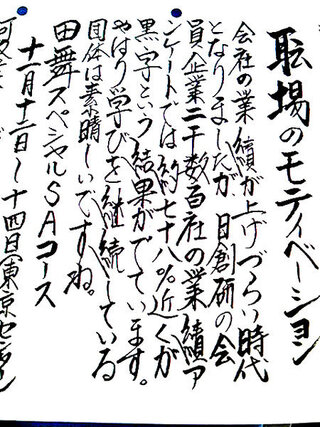 職場のモティベーション
会社の業績が上げづらい時代
となりましたが、日創研の会
員企業二千数百社の業績ア
ンケートでは約七十八%近くが
黒字という結果がでています。
やはり学びを継続している
団体は素晴しいですね。
田舞スペシャルSAコース
十一月十二日〜十四日(東京センター